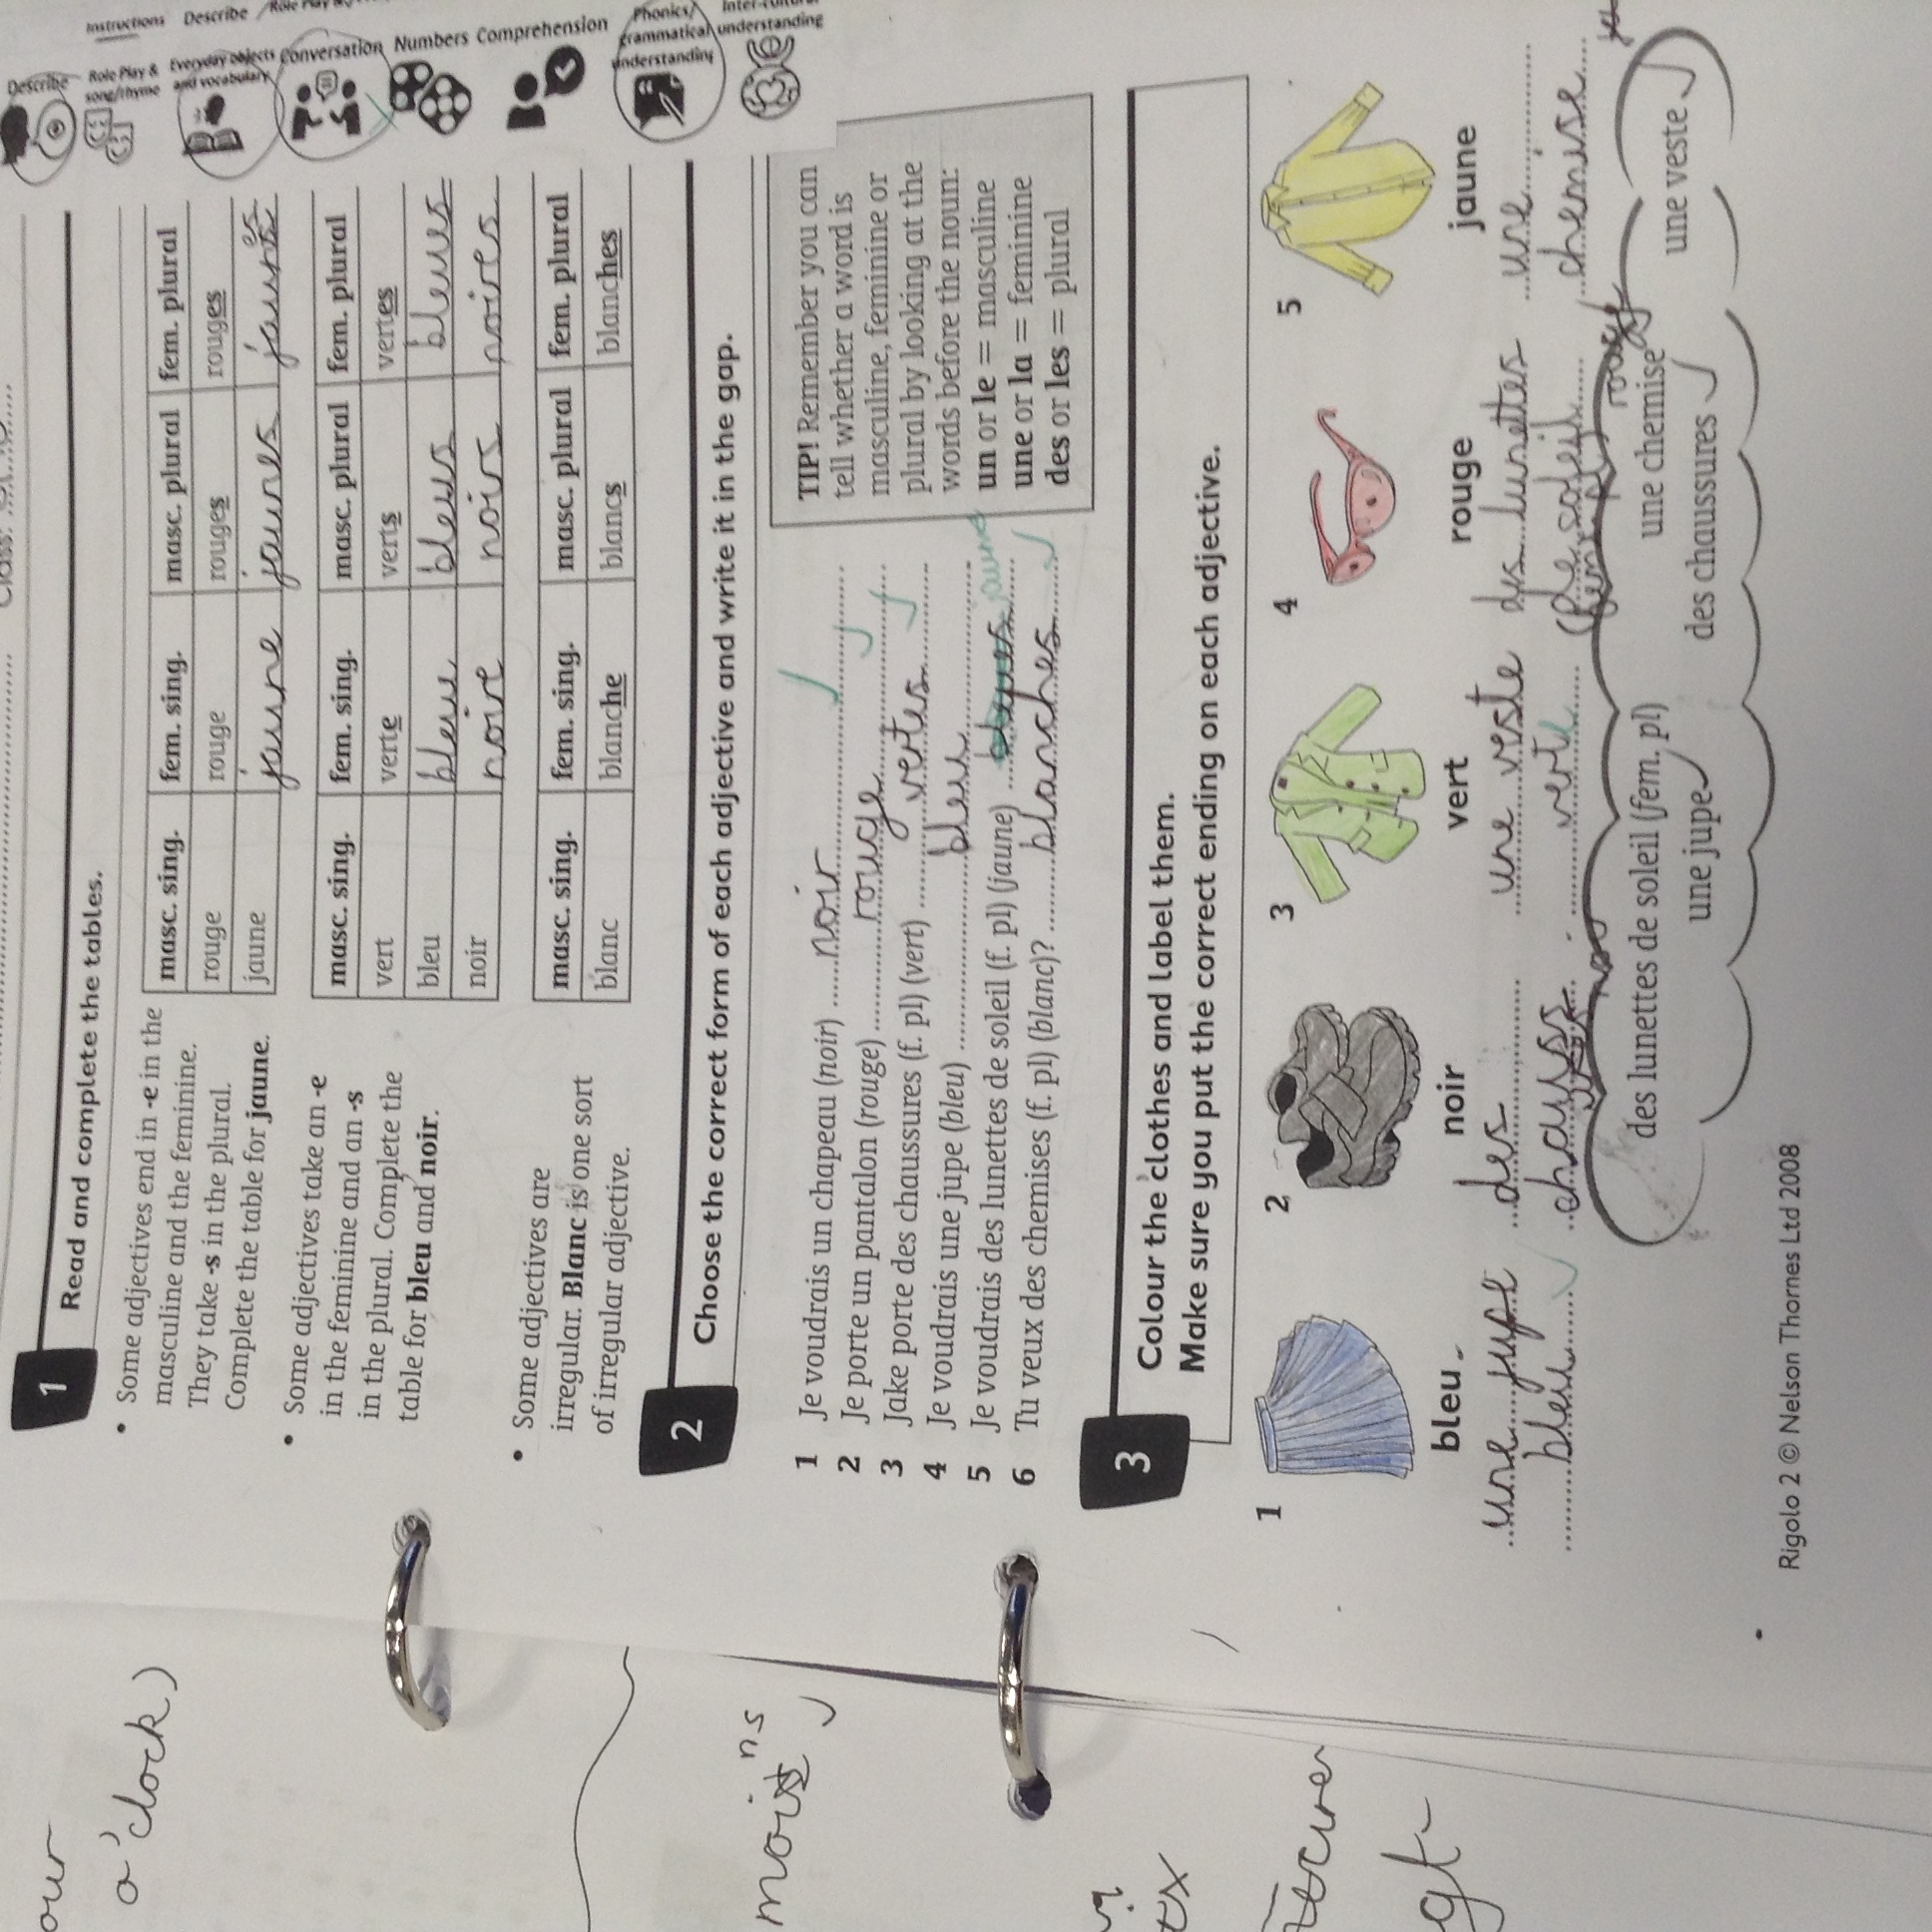 Instructions Describe
Describe
Role Play & song/rhyme
Everyday objects and vocabulary
Conversation
Numbers
Comprehension
Phonics/ grammatical understanding
understanding
1 Read and complete the tables.
• Some adjectives end in -e in the
masculine and the feminine.
They take -s in the plural.
Complete the table for jaune.
masc. sing. fem. sing. masc. plural fem. plural
rouge rouge rouges rouges
jaune jaune jaunes jaunes
• Some adjectives take an -e
in the feminine and an -s
in the plural. Complete the
table for bleu and noir.
masc. sing. fem. sing. masc. plural fem. plural
vert verte verts vertes
bleu bleue bleus bleues
noir noire noirs noires
• Some adjectives are
irregular. Blanc is one sort
of irregular adjective.
masc. sing. fem. sing. masc. plural fem. plural
blanc blanche blancs blanches
2 Choose the correct form of each adjective and write it in the gap.
1 Je voudrais un chapeau (noir) noir
2 Je porte un pantalon (rouge) rouge
3 Jake porte des chaussures (f. pl) (vert) vertes
4 Je voudrais une jupe (bleu) bleu
5 Je voudrais des lunettes de soleil (f. pl) (jaune)
6 Tu veux des chemises (f. pl) (blanc)? blanches
TIP! Remember you can
tell whether a word is
masculine, feminine or
plural by looking at the
words before the noun:
un or le = masculine
une or la = feminine
des or les = plural
3 Colour the clothes and label them.
Make sure you put the correct ending on each adjective.
1 2 3 4 5
bleu noir vert rouge jaune
une jupe
bleu
des
chauss
une veste
verte
des lunettes
de soleil
une
chemise
des lunettes de soleil (fem. pl)
une chemise
une veste
une jupe
des chaussures
Rigolo 2 © Nelson Thornes Ltd 2008
our
o'clock)
ns